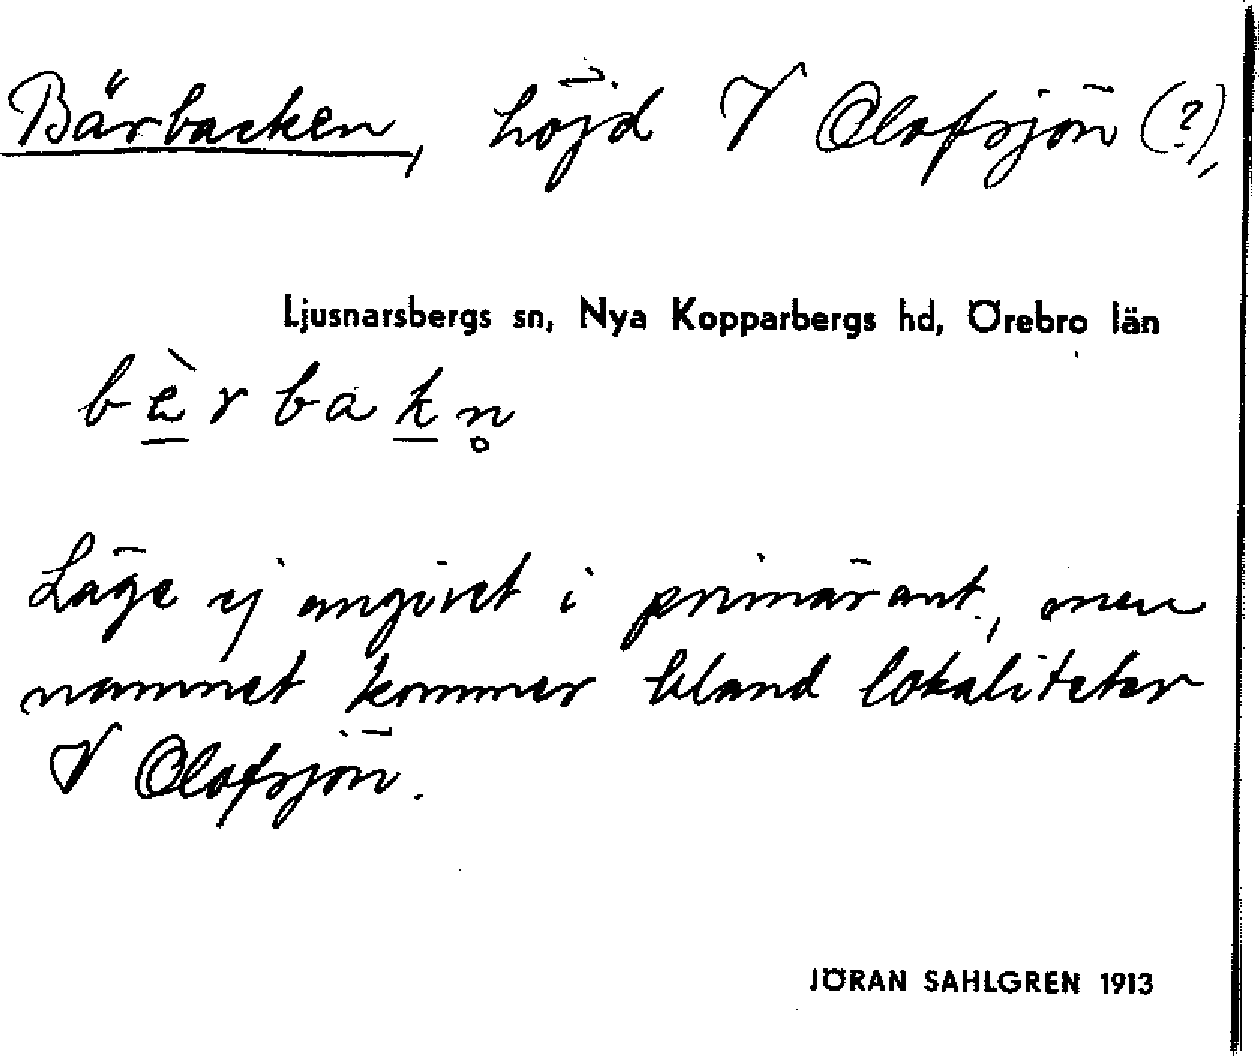 Bärbacken, höjd V Olofsjön (?),
Ljusnarsbergs sn, Nya Kopparbergs hd, Örebro län
bèrbakn̥
Läge ej angivet i primärant., men
namnet kommer bland lokaliteter
V Olofsjön.
JÖRAN SAHLGREN 1913